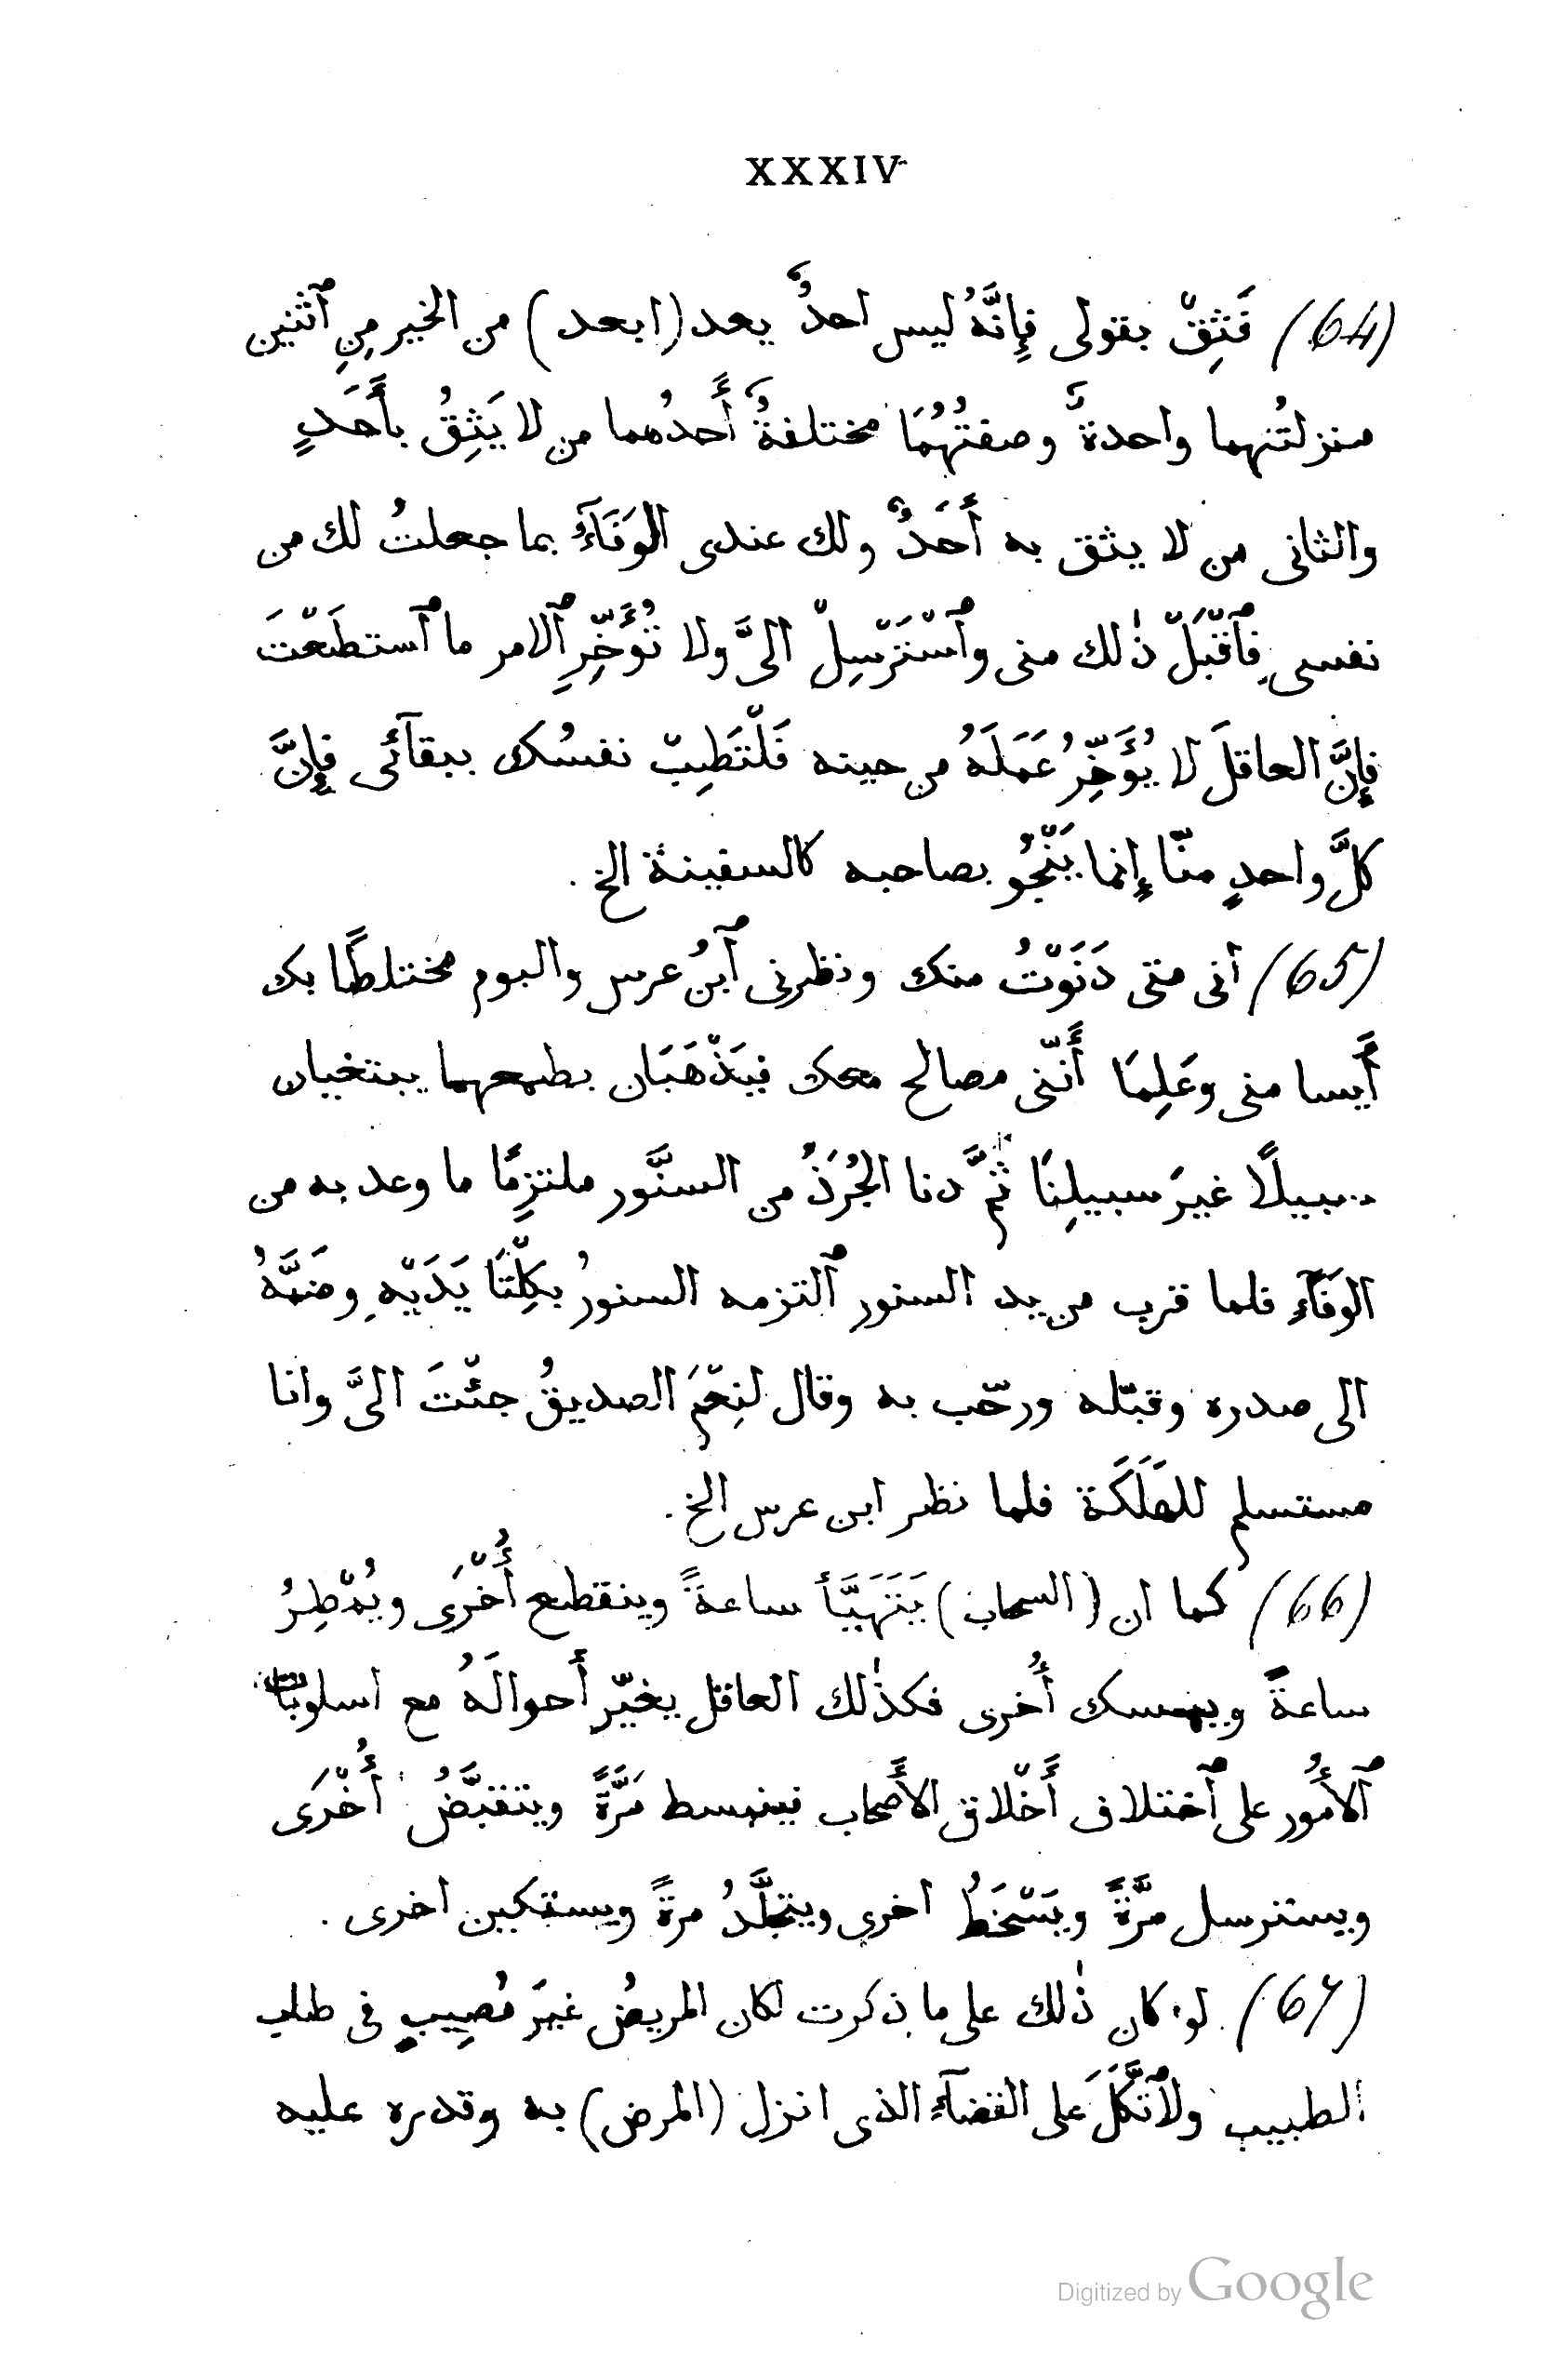 XXXIV
(64) فَثِقْ بقولى فإِنَّهُ ليس احدٌ يعد (ابعد) من الخير مِنِ ٱثنين
منزلتُنهما واحدةٌ وصفتُهُمَا مختلفةٌ أَحدُهما من لا يَثِقُ بأَحَدٍ
والثانى من لا يثق به أَحَدٌ ولك عندى الوَفَآءُ بما جعلتُ لك من
نفسى فٱقْبَلْ ذٰلك منى وٱسْتَرْسِلْ الىَّ ولا تُؤَخِّرِ ٱلامر ما ٱستطَعْتَ
فإِنَّ العاقلَ لا يُؤَخِّرُ عَمَلَهُ من حينه فَلْتَطِبْ نفسُك ببقآئى فإِنَّ
كلَّ واحدٍ منّا إِنما يَنْجُو بصاحبه كالسفينة الخ.
(65) انى متى دَنَوْتُ منك ونظرنى ٱبنُ عرس والبوم مختلطًا بك
أَيسا منى وعَلِمَا أَنّنى مصالح معك فيَذْهَبَان بطمعهما يبتغيان
سبيلًا غيرَ سبيلِنَا ثمَّ دنا الجُرَذُ من السنَّور ملتزِمًا ما وعد به من
الوَفَآءِ فلما قرب من يد السنور ٱلتزمه السنورُ بكِلْتَا يَدَيْهِ وضَمَّهُ
الى صدره وقبّله ورحّب به وقال لنِعْمَ الصديقُ جئْتَ الىَّ وانا
مستسلم للهَلَكَة فلما نظر ابن عرس الخ.
(66) كما ان (السحاب) يَتَهَيَّأ ساعةً وينقطع أُخْرَى ويُمْطِرُ
ساعةً ويمسك أُخرى فكذٰلك العاقل يغيّر أَحوالَهُ مع اسلوبات
ٱلأُمور على ٱختلاف أَخْلاق الأَصحاب فينبسط مَرَّةً ويتقبَّضُ أُخْرَى
ويسترسل مرَّةً ويَسْخَطُ اخرى ويتجلَّدُ مرةً ويستكين اخرى.
(67) لو كان ذٰلك على ما ذكرت لكان المريضُ غيرَ مُصِيبٍ فى طلب
الطبيب ولٱتَّكَلَ على القضآءِ الذى انزل (المرض) به وقدره عليه
Digitized by Google